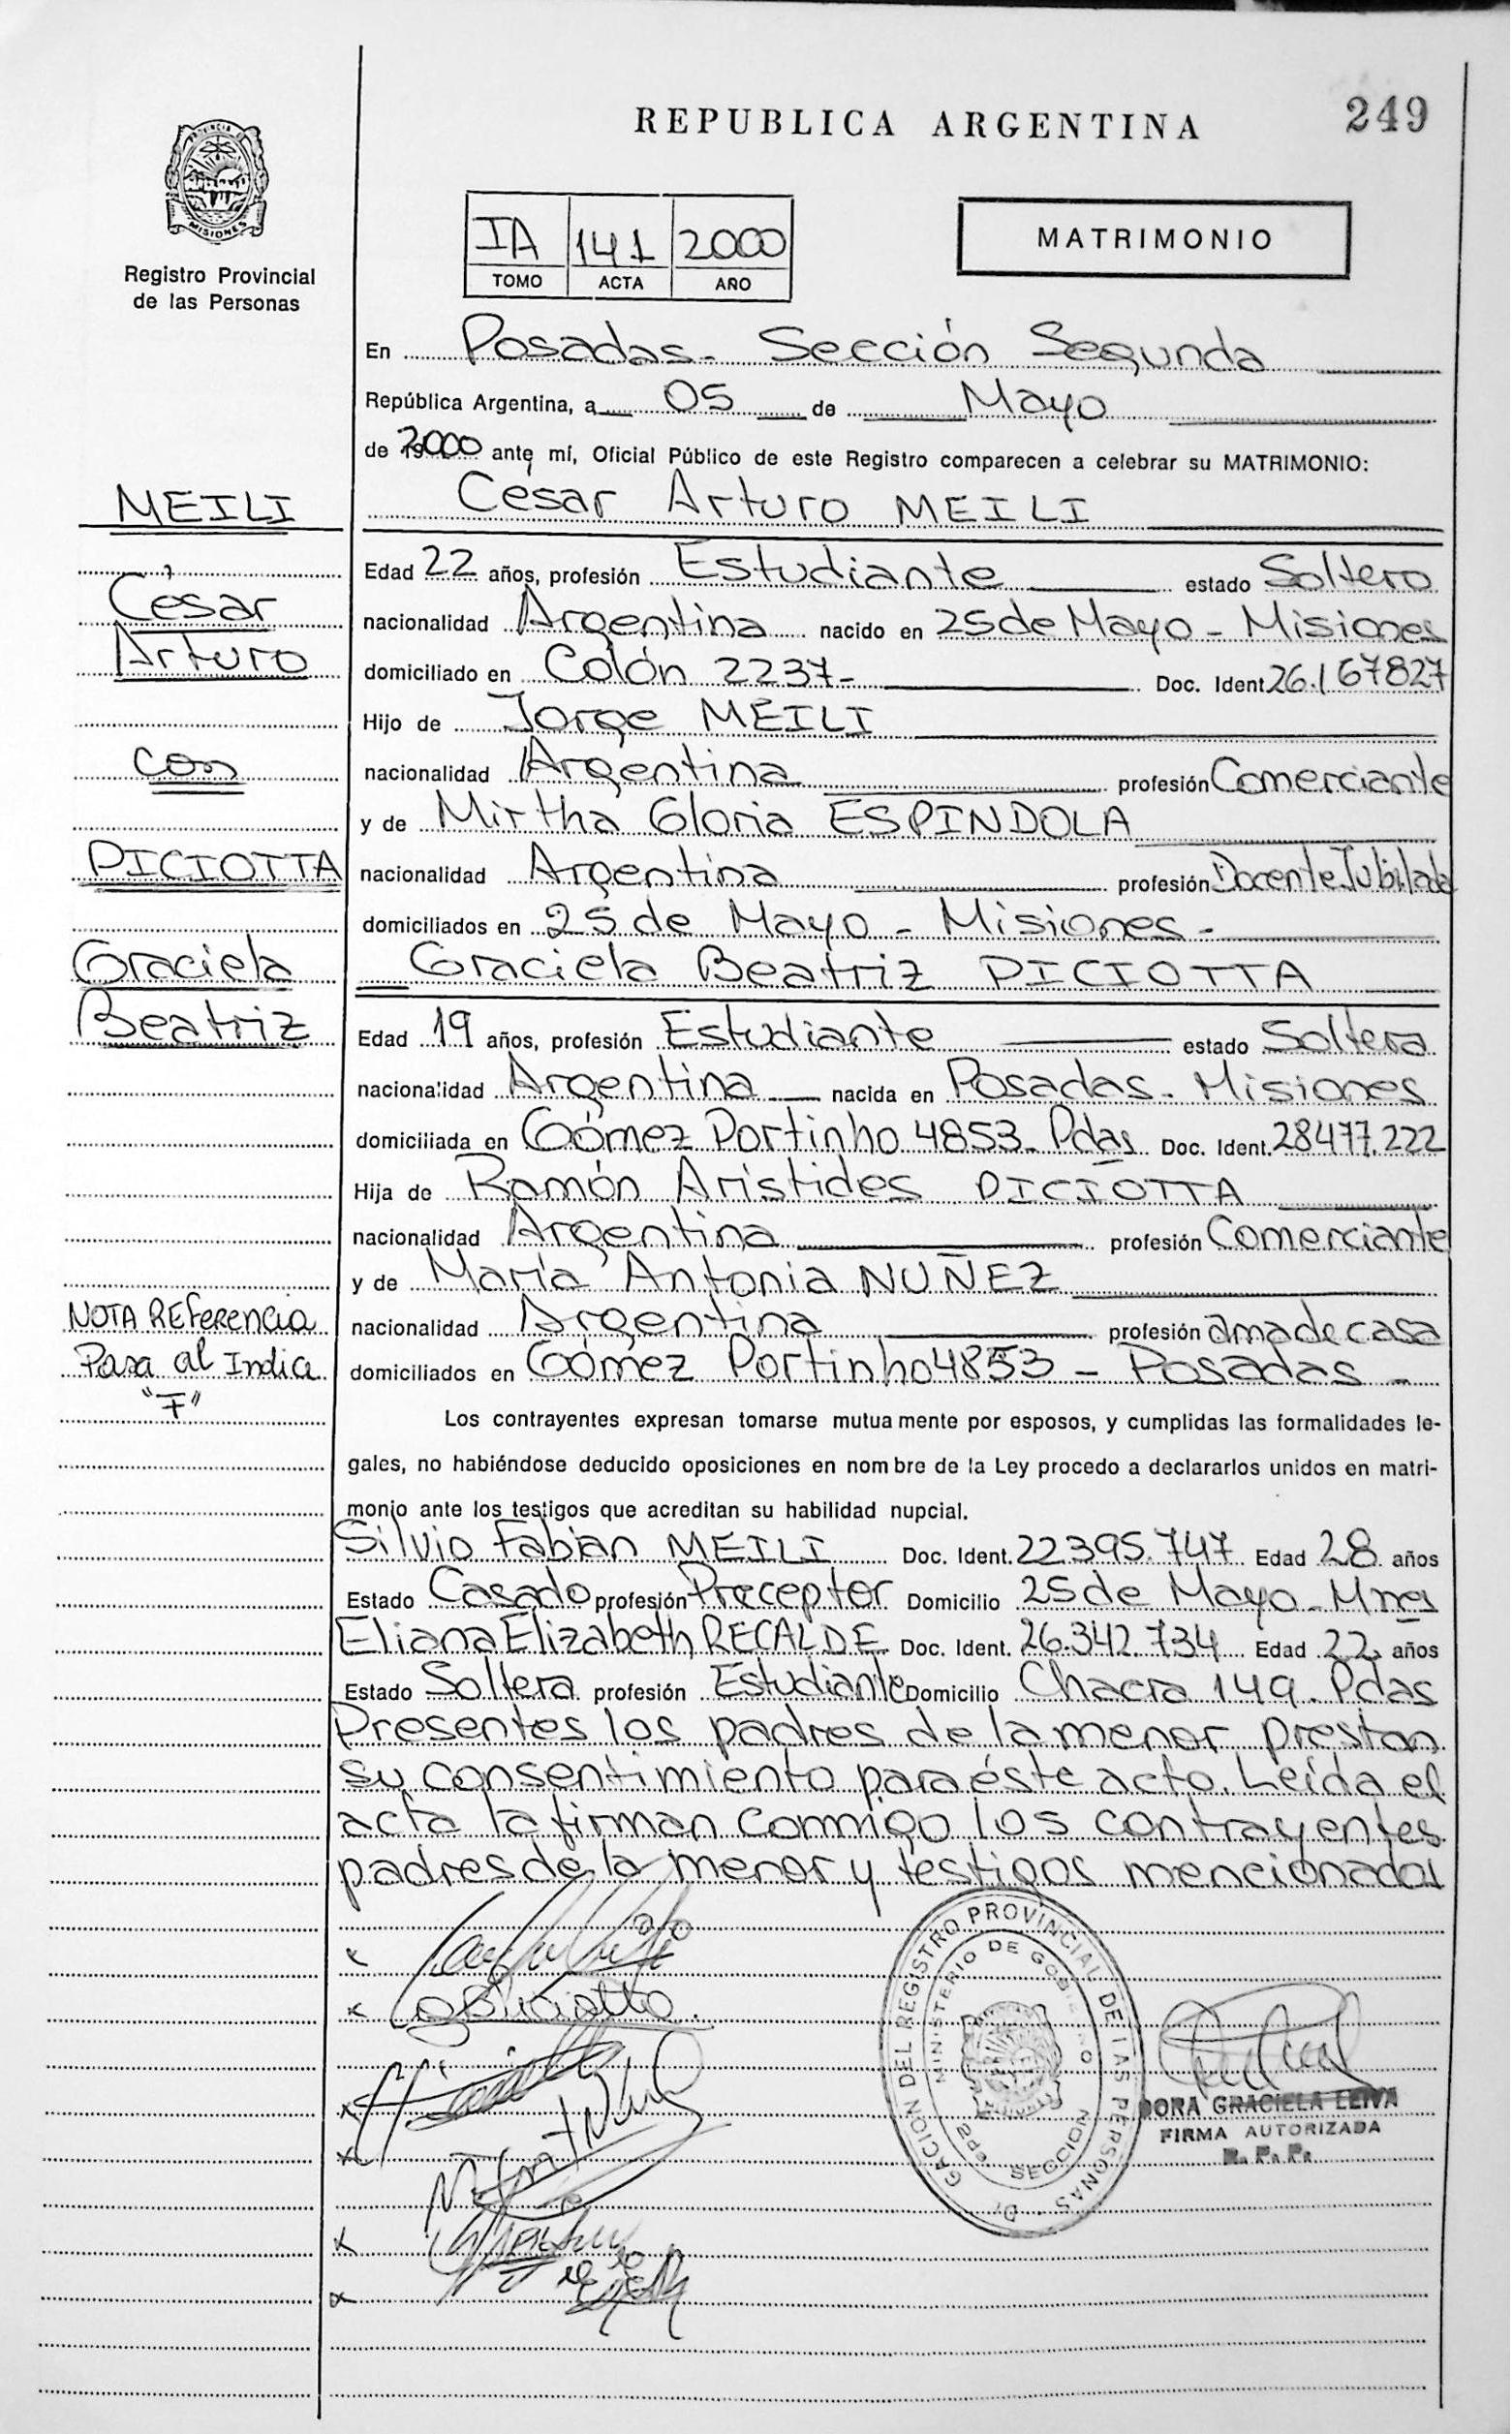 249
REPUBLICA ARGENTINA
MISIONES
Registro Provincial
de las Personas
IA 141 2000
TOMO ACTA AÑO
MATRIMONIO
En Posadas - Sección Segunda
República Argentina, a 05 de Mayo
de 2000 ante mí, Oficial Público de este Registro comparecen a celebrar su MATRIMONIO:
MEILI
César Arturo MEILI
Edad 22 años, profesión Estudiante estado Soltero
César
nacionalidad Argentina nacido en 25 de Mayo - Misiones
Arturo
domiciliado en Colón 2237 - Doc. Ident 26.167827
Hijo de Jorge MEILI
con
nacionalidad Argentina profesión Comerciante
y de Mirtha Gloria ESPINDOLA
PICIOTTA
nacionalidad Argentina profesión Docente Jubilada
domiciliados en 25 de Mayo - Misiones -
Graciela
Graciela Beatriz PICIOTTA
Beatriz
Edad 19 años, profesión Estudiante estado Soltera
nacionalidad Argentina nacida en Posadas - Misiones
domiciliada en Gómez Portinho 4853 - Pdas Doc. Ident. 28477.222
Hija de Ramón Arístides PICIOTTA
nacionalidad Argentina profesión Comerciante
y de María Antonia NUÑEZ
NOTA REFerencia
nacionalidad Argentina profesión ama de casa
Pasa al Indice
domiciliados en Gómez Portinho 4853 - Posadas -
"F"
Los contrayentes expresan tomarse mutuamente por esposos, y cumplidas las formalidades le-
gales, no habiéndose deducido oposiciones en nombre de la Ley procedo a declararlos unidos en matri-
monio ante los testigos que acreditan su habilidad nupcial.
Silvio Fabian MEILI Doc. Ident. 22395.747 Edad 28 años
Estado Casado profesión Preceptor Domicilio 25 de Mayo - Mnes
Eliana Elizabeth RECALDE Doc. Ident. 26.342.734 Edad 22 años
Estado Soltera profesión Estudiante Domicilio Chacra 149. Pdas
Presentes los padres de la menor prestan
su consentimiento para éste acto. Leída el
acta la firman conmigo los contrayentes
padres de la menor y testigos mencionados
GACION DEL REGISTRO PROVINCIAL DE LAS PERSONAS
MINISTERIO DE GOBIERNO
SECCION
DORA GRACIELA LEIVA
FIRMA AUTORIZADA
R. P. P.